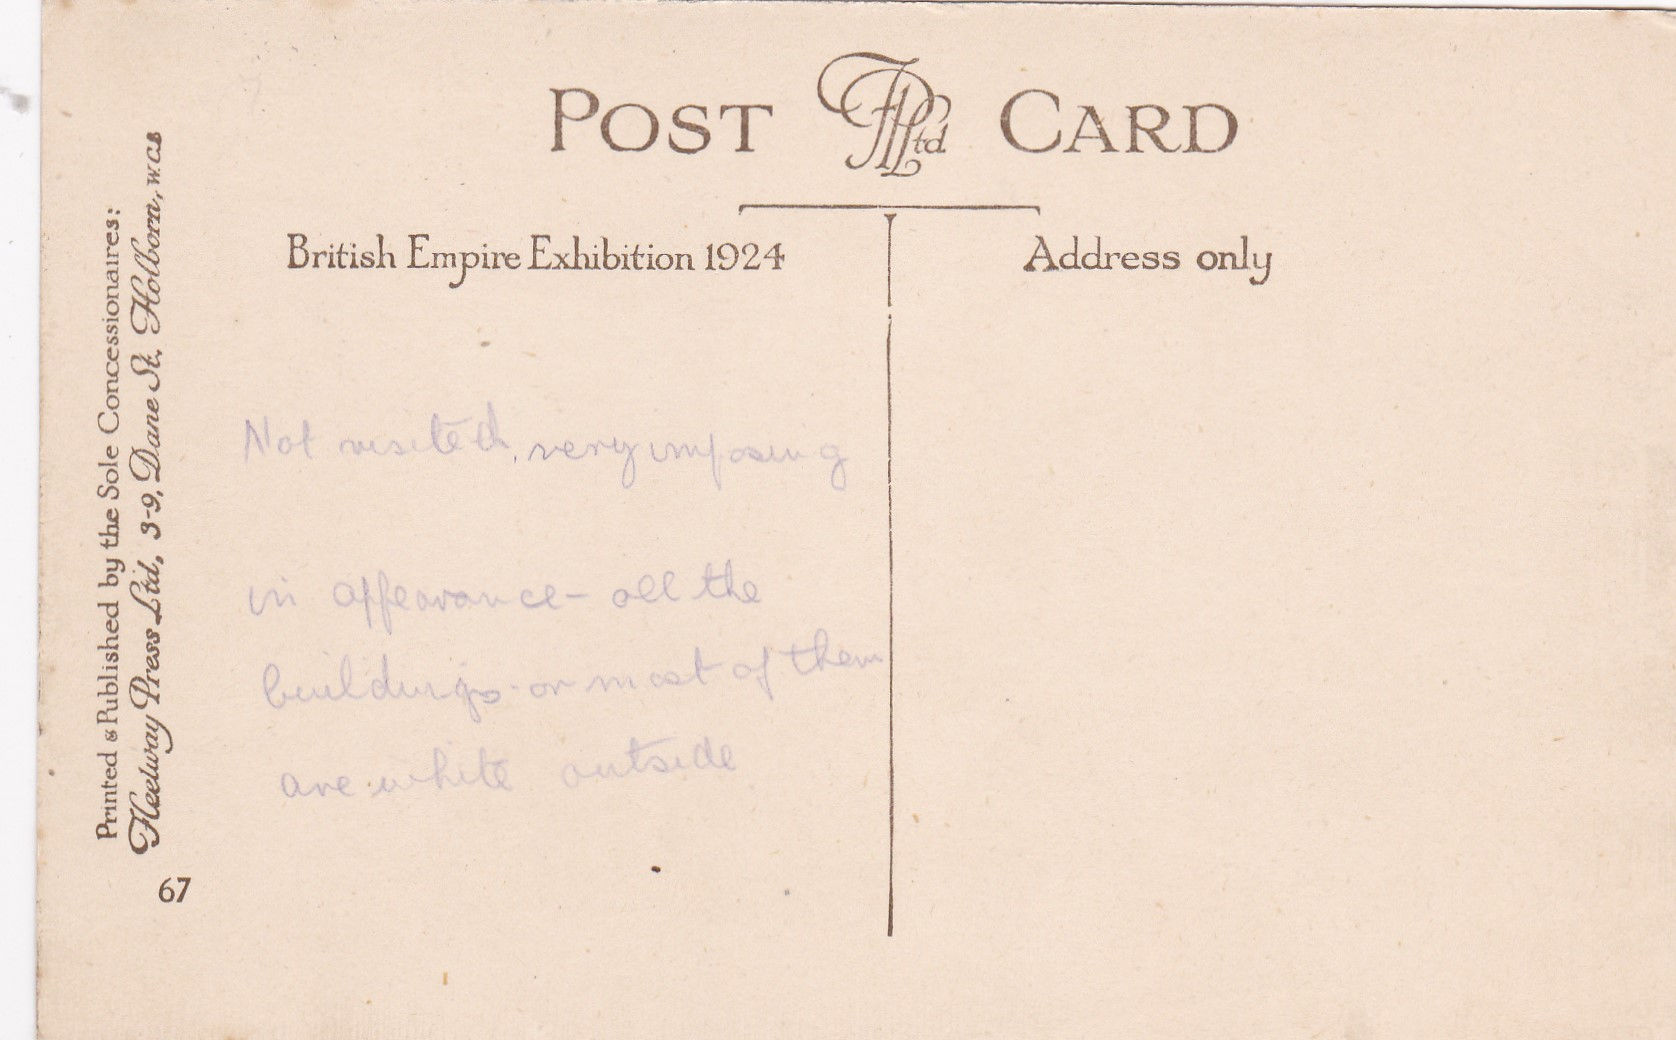 POST FPLtd CARD
British Empire Exhibition 1924
Address only
Not visited, very imposing
in appearance - all the
buildings - or most of them
are white outside
Printed & Published by the Sole Concessionaires:
Fleetway Press Ltd, 3-9, Dane St. Holborn, W.C.1
67